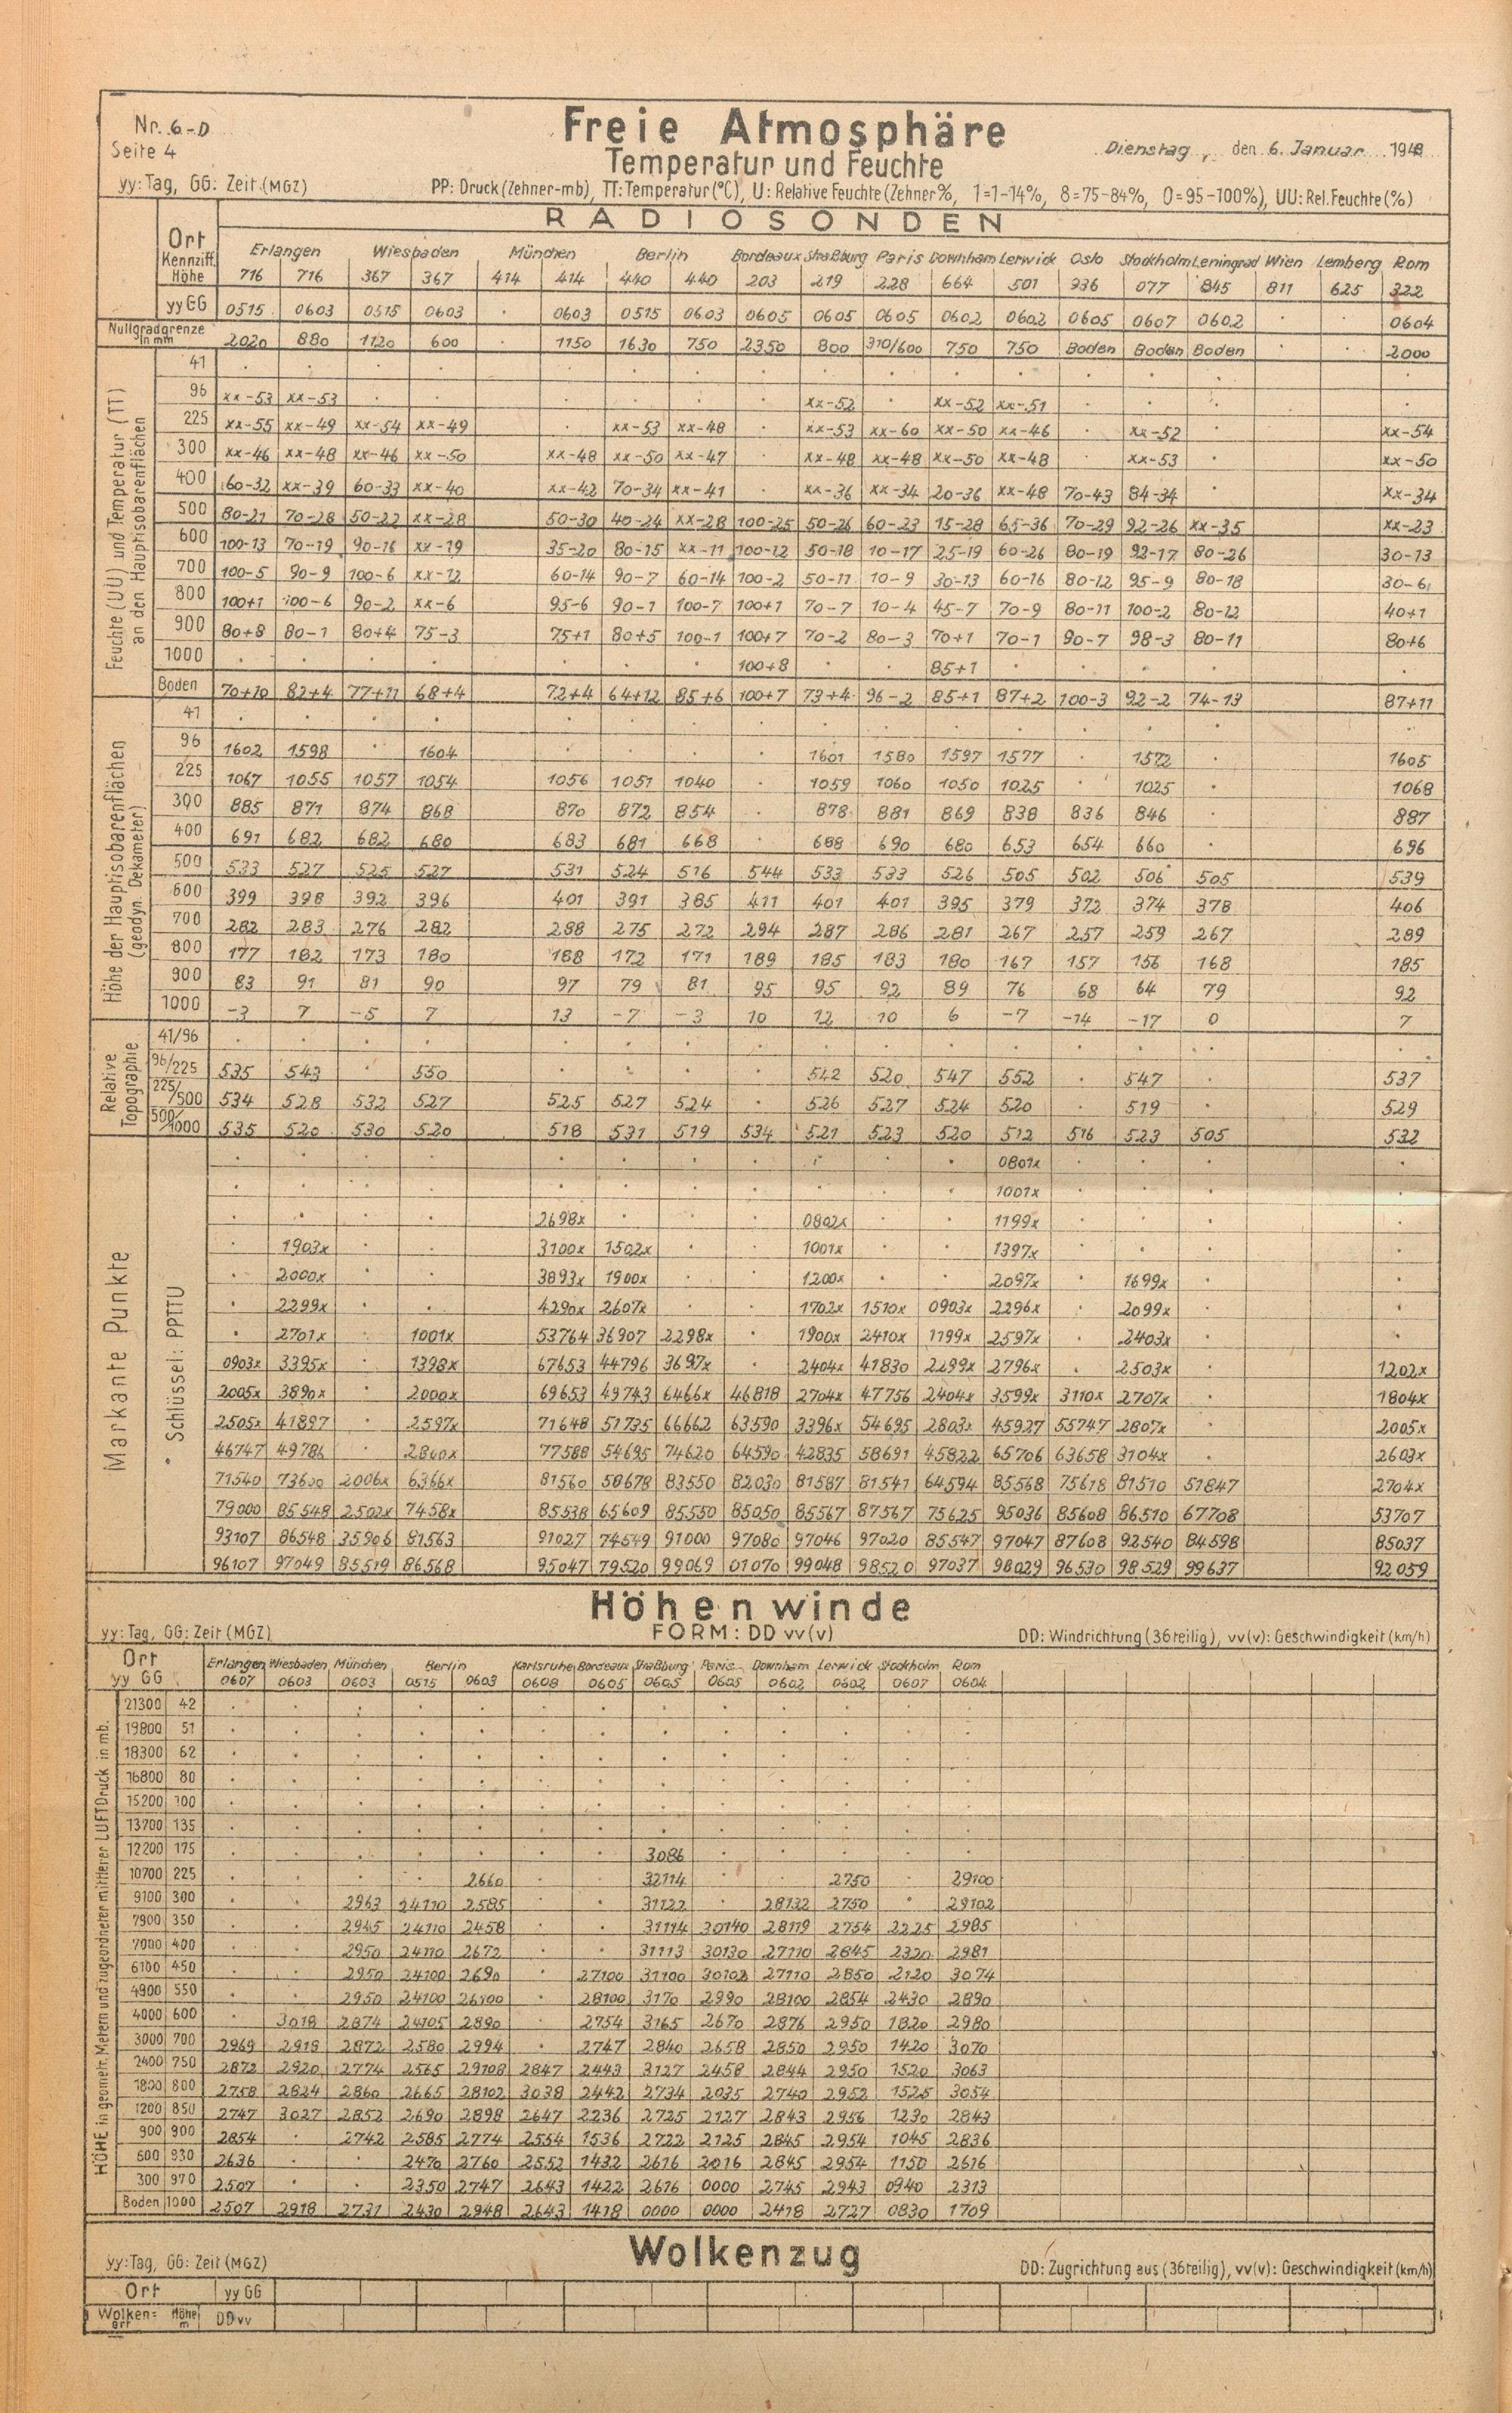 Nr. 6-D
Seite 4
Freie Atmosphäre
Temperatur und Feuchte
Dienstag, den 6. Januar 1948
yy: Tag, GG: Zeit (MGZ) PP: Druck (Zehner-mb), TT: Temperatur (°C), U: Relative Feuchte (Zehner %, 1=1-14%, 8=75-84%, 0=95-100%), UU: Rel. Feuchte (%)
RADIOSONDEN
Ort Erlangen Wiesbaden München Berlin Bordeaux Straßburg Paris Downham Lerwick Oslo Stockholm Leningrad Wien Lemberg Rom
Kennziff. Höhe 716 716 367 367 414 414 440 440 203 219 228 664 501 936 077 845 811 625 322
yy GG 0515 0603 0515 0603 . 0603 0515 0603 0605 0605 0605 0602 0602 0605 0607 0602 . . 0604
Nullgradgrenze in mm 2020 880 1120 600 . 1150 1630 750 2350 800 310/600 750 750 Boden Boden Boden . . 2000
Feuchte (UU) und Temperatur (TT) an den Hauptisobarenflächen
41
96 xx-53 xx-53 . . . . . . xx-52 . xx-52 xx-51 . . . .
225 xx-55 xx-49 xx-54 xx-49 . xx-53 xx-48 . xx-53 xx-60 xx-50 xx-46 . xx-52 . xx-54
300 xx-46 xx-48 xx-46 xx-50 xx-48 xx-50 xx-47 . xx-48 xx-48 xx-50 xx-48 . xx-53 . xx-50
400 60-32 xx-39 60-33 xx-40 xx-42 70-34 xx-41 . xx-36 xx-34 20-36 xx-48 70-43 84-34 . xx-34
500 80-21 70-28 50-22 xx-28 50-30 40-24 xx-28 100-25 50-26 60-23 15-28 65-36 70-29 92-26 xx-35 xx-23
600 100-13 70-19 90-16 xx-19 35-20 80-15 xx-11 100-12 50-18 10-17 25-19 60-26 80-19 92-17 80-26 30-13
700 100-5 90-9 100-6 xx-12 60-14 90-7 60-14 100-2 50-11 10-9 30-13 60-16 80-12 95-9 80-18 30-6
800 100+1 100-6 90-2 xx-6 95-6 90-1 100-7 100+1 70-7 10-4 45-7 70-9 80-11 100-2 80-12 40+1
900 80+8 80-1 80+4 75-3 75+1 80+5 100-1 100+7 70-2 80-3 70+1 70-1 90-7 98-3 80-11 80+6
1000 . . . . . . . 100+8 . . 85+1 . . . . .
Boden 70+10 82+4 77+11 68+4 72+4 64+12 85+6 100+7 73+4 96-2 85+1 87+2 100-3 92-2 74-13 87+11
Höhe der Hauptisobarenflächen (geodyn. Dekameter)
41
96 1602 1598 . 1604 . . . . 1601 1580 1597 1577 . 1572 . 1605
225 1067 1055 1057 1054 1056 1051 1040 . 1059 1060 1050 1025 . 1025 . 1068
300 885 871 874 868 870 872 854 . 878 881 869 838 836 846 . 887
400 691 682 682 680 683 681 668 . 688 690 680 653 654 660 . 696
500 533 527 525 527 531 524 516 544 533 533 526 505 502 506 505 539
600 399 398 392 396 401 391 385 411 401 401 395 379 372 374 378 406
700 282 283 276 282 288 275 272 294 287 286 281 267 257 259 267 289
800 177 182 173 180 188 172 171 189 185 183 180 167 157 156 168 185
900 83 91 81 90 97 79 81 95 95 92 89 76 68 64 79 92
1000 -3 7 -5 7 13 -7 -3 10 12 10 6 -7 -14 -17 0 7
Relative Topographie
41/96
96/225 535 543 . 550 . . . . 542 520 547 552 . 547 . 537
225/500 534 528 532 527 525 527 524 . 526 527 524 520 . 519 . 529
500/1000 535 520 530 520 518 531 519 534 521 523 520 512 516 523 505 532
Markante Punkte
Schlüssel: PPTTU
0801x
1001x
2698x 0802x 1199x
1903x 3100x 1502x 1001x 1397x
2000x 3893x 1900x 1200x 2097x 1699x
2299x 4290x 2607x 1702x 1510x 0903x 2296x 2099x
2701x 1001x 53764 36907 2298x 1900x 2410x 1199x 2597x 2403x
0903x 3395x . 1398x 67653 44796 3697x . 2404x 41830 2299x 2796x . 2503x . 1202x
2005x 3890x . 2000x 69653 49743 6466x 46818 2704x 47756 2404x 3599x 3110x 2707x . 1804x
2505x 41897 . 2597x 71648 51735 66662 63590 3396x 54695 2803x 45927 55747 2807x . 2005x
46747 49786 . 2860x 77588 54695 74620 64590 42835 58691 45822 65706 63658 3104x . 2603x
71540 73600 2006x 6366x 81560 58678 83550 82030 81587 81541 64594 85568 75618 81510 51847 2704x
79000 85548 2502x 7458x 85538 65609 85550 85050 85567 87567 75625 95036 85608 86510 67708 53707
93107 86548 35906 81563 91027 74549 91000 97080 97046 97020 85547 97047 87608 92540 84598 85037
96107 97049 85519 86568 95047 79520 99069 01070 99048 98520 97037 98029 96530 98529 99637 92059
Höhenwinde
yy: Tag, GG: Zeit (MGZ) FORM: DD vv(v) DD: Windrichtung (36teilig), vv(v): Geschwindigkeit (km/h)
Ort Erlangen Wiesbaden München Berlin Karlsruhe Bordeaux Straßburg Paris Downham Lerwick Stockholm Rom
yy GG 0607 0603 0603 0515 0603 0608 0605 0605 0605 0602 0602 0607 0604
HÖHE in geometr. Metern und zugeordneter mittlerer LUFTDruck in mb.
21300 42
19800 51
18300 62
16800 80
15200 100
13700 135
12200 175 3086
10700 225 2660 32114 2750 29100
9100 300 2963 24110 2585 31122 28132 2750 29102
7900 350 2945 24110 2458 31114 30140 28119 2754 2225 2985
7000 400 2950 24110 2672 31113 30130 27110 2845 2320 2981
6100 450 2950 24100 2690 27100 31100 30102 27110 2850 2120 3074
4900 550 2950 24100 26100 28100 3170 2990 28100 2854 2430 2890
4000 600 3018 2874 24105 2890 2754 3165 2670 2876 2950 1820 2980
3000 700 2969 2919 2872 2580 2994 . 2747 2840 2658 2850 2950 1420 3070
2400 750 2872 2920 2774 2565 29108 2847 2443 3127 2458 2844 2950 1520 3063
1800 800 2758 2824 2860 2665 28102 3038 2442 2734 2035 2740 2952 1525 3054
1200 850 2747 3027 2852 2690 2898 2647 2236 2725 2127 2843 2956 1230 2843
900 900 2854 . 2742 2585 2774 2554 1536 2722 2125 2845 2954 1045 2836
600 930 2636 . . 2470 2760 2552 1432 2616 2016 2845 2954 1150 2616
300 970 2507 . . 2350 2747 2643 1422 2616 0000 2745 2943 0940 2313
Boden 1000 2507 2918 2731 2430 2948 2643 1418 0000 0000 2418 2727 0830 1709
Wolkenzug
yy: Tag, GG: Zeit (MGZ) DD: Zugrichtung aus (36teilig), vv(v): Geschwindigkeit (km/h)
Ort yy GG
Wolken=art Höhe m DD vv